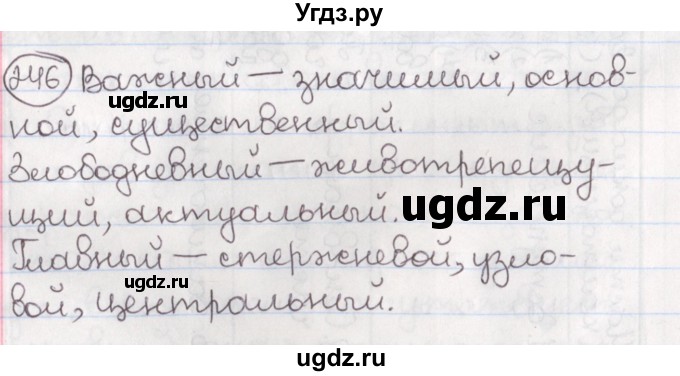 Угдз.ру
246 Важный — значимый, основ-
ugdz.ru
ной, существенный.
ugdz.ru
Злободневный — животрепещу-
щий, актуальный.
ugdz.ru
Главный — стержневой, узло-
вой, центральный.
ugdz.ru
ugdz.ru